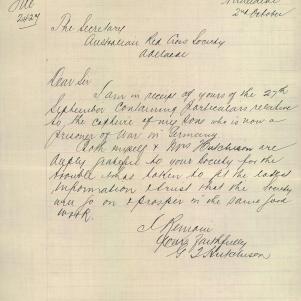 2nd October
The Secretary
Australian Red Cross Society
Adelaide
Dear Sir
I am in receipt of yours of the 27th
September Containing particulars relative
to the capture of my Sons who is now a
prisoner of War in Germany.
Both myself & Mrs Hutchison are
deeply grateful to your Society for the
trouble taken to get the latest
Information & trust that the Society
will go on & prosper in the same good
work.
I Remain
Yours Faithfully
G Hutchison